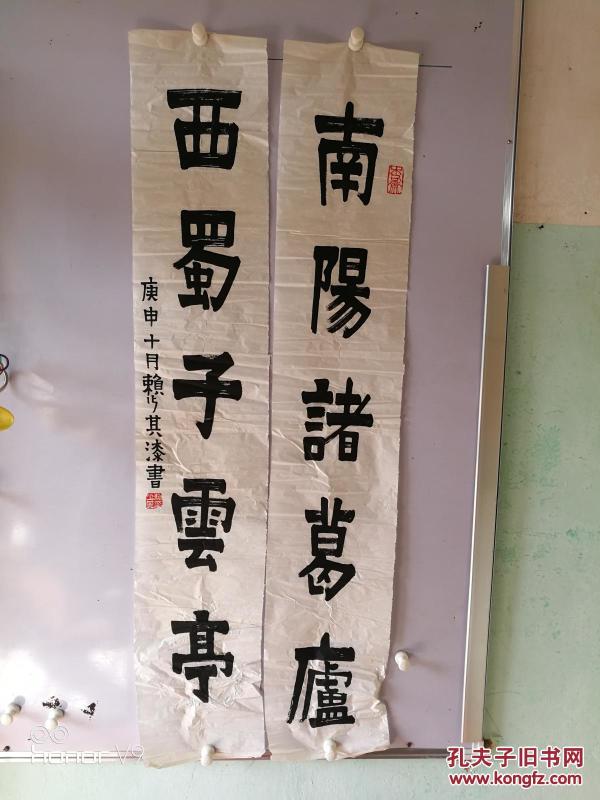 南陽諸葛廬
西蜀子雲亭
庚申十月賴少其漆書
honor V9
孔夫子旧书网
www.kongfz.com